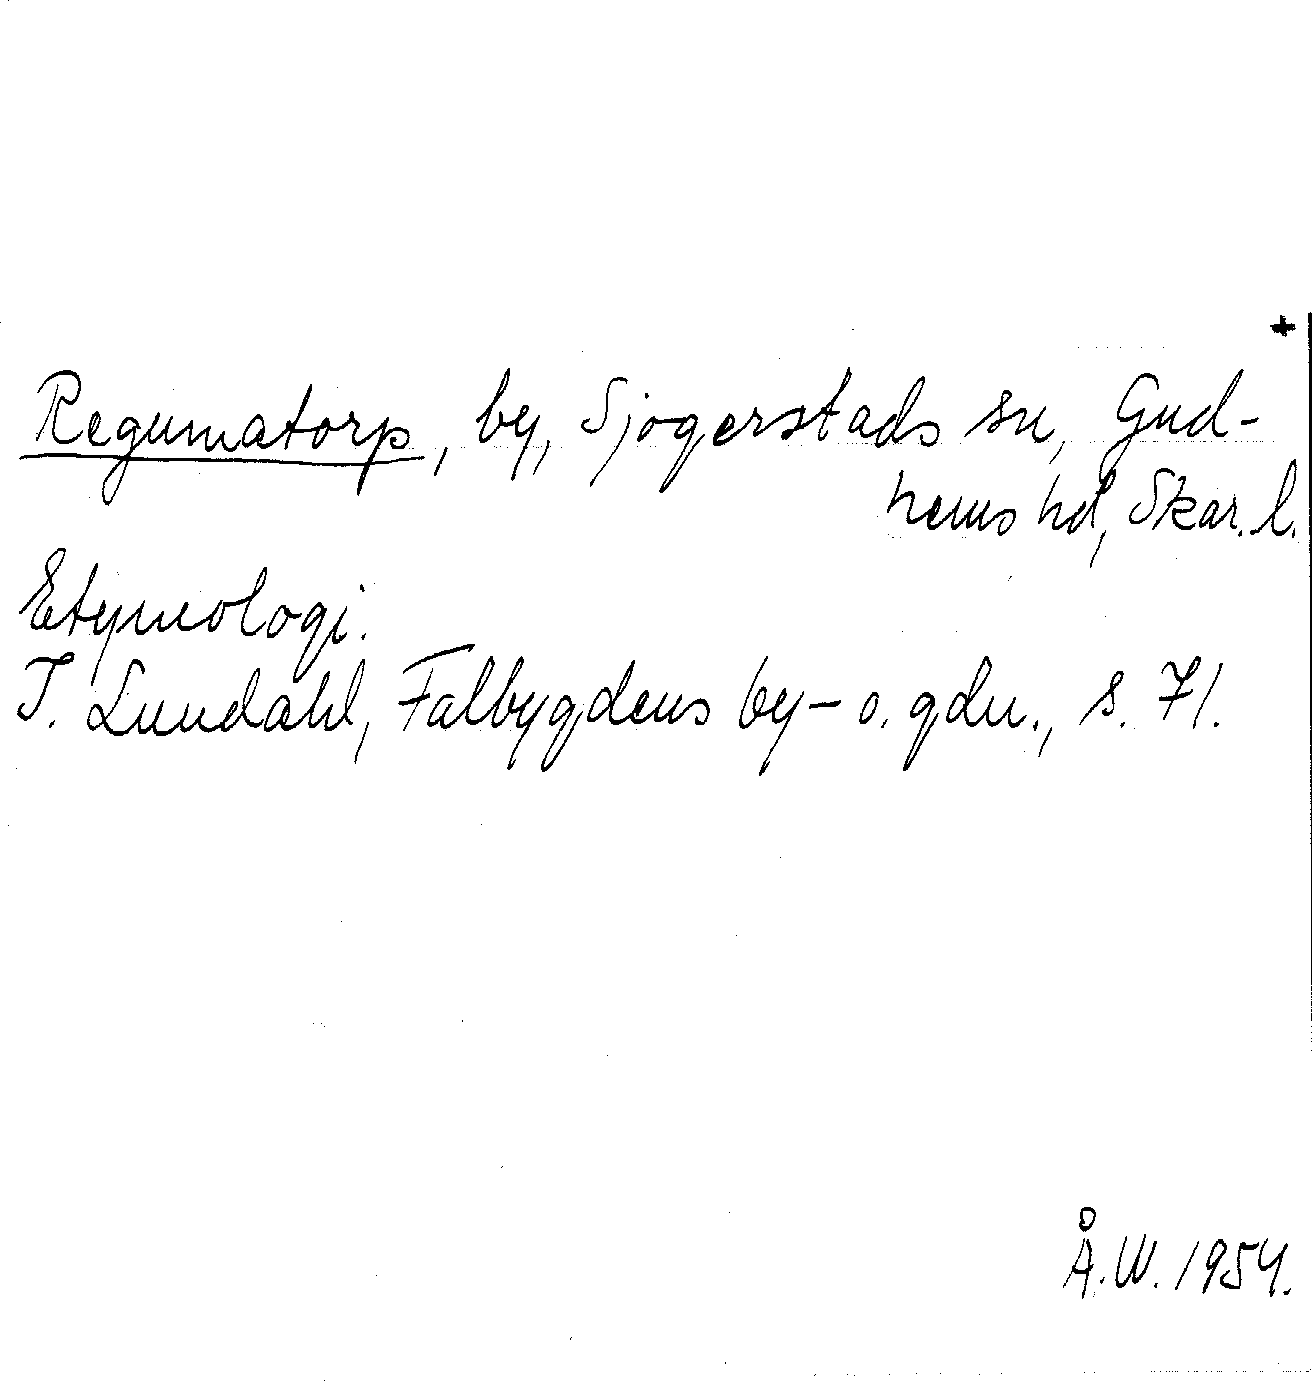 +
Regumatorp, by, Sjogerstads sn, Gud-
hems hd, Skar. l.
Etymologi.
I. Lundahl, Falbygdens by- o. gdn., s. 71.
Å.W. 1954.